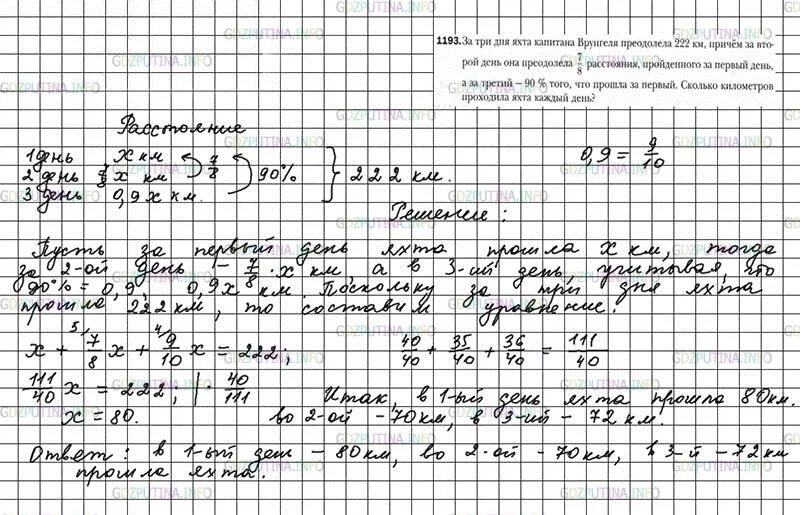 GDZPUTINA.INFO
1193. За три дня яхта капитана Врунгеля преодолела 222 км, причём за вто-
рой день она преодолела 7/8 расстояния, пройденного за первый день,
а за третий – 90 % того, что прошла за первый. Сколько километров
проходила яхта каждый день?
Расстояние
1 день х км 7/8
2 день 7/8 х км 90% } 222 км.
3 день 0,9 х км.
0,9 = 9/10
Решение:
Пусть за первый день яхта прошла х км, тогда
за 2-ой день – 7/8 · х км, а в 3-ий день, учитывая, что
90% = 0,9, 0,9х км. Поскольку за три дня яхта
прошла 222 км, то составим уравнение.
х + 5/ 7/8 х + 4/ 9/10 х = 222; 40/40 + 35/40 + 36/40 = 111/40
111/40 х = 222, | · 40/111 Итак, в 1-ый день яхта прошла 80км.
х = 80. во 2-ой – 70км, в 3-ий – 72 км.
Ответ: в 1-ый день – 80км, во 2-ой – 70км, в 3-й – 72км
прошла яхта.